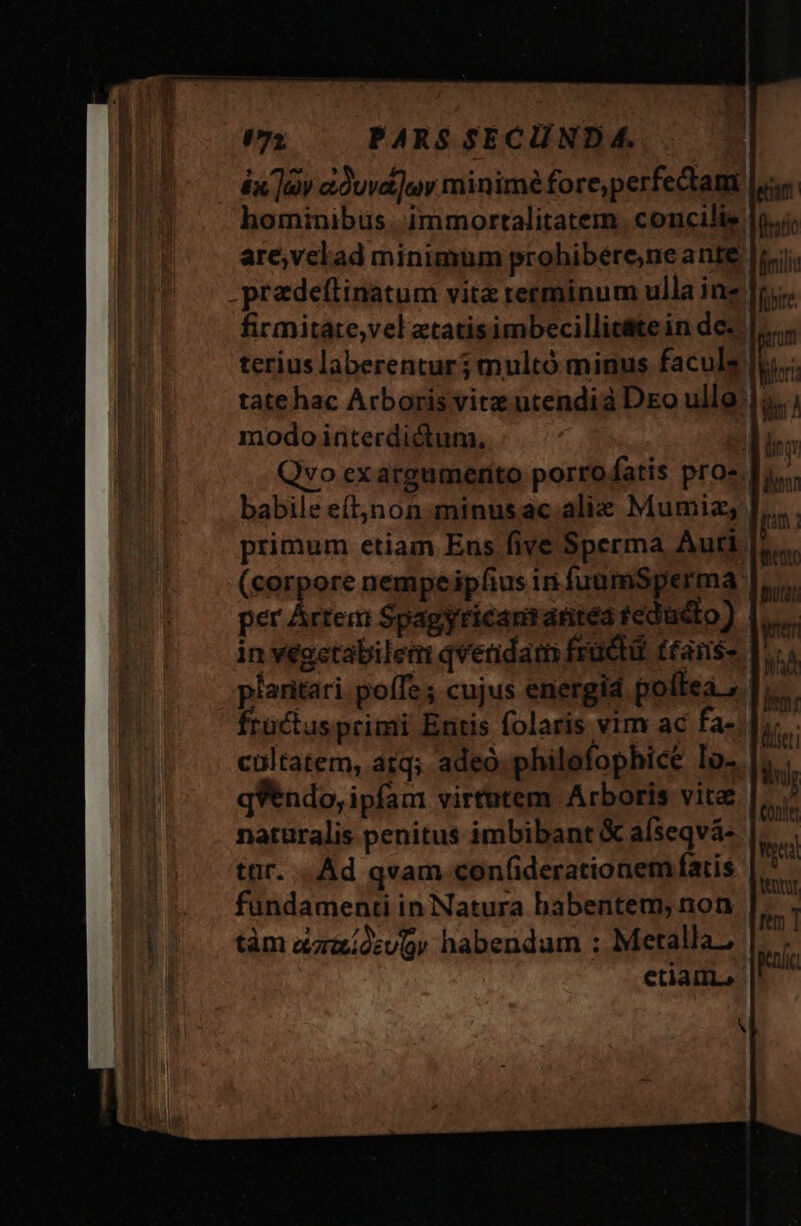 172 PARS SECUNDA.
ἐκ τῶν ἀδυνάτων minimè fore, perfectam
hominibus immortalitatem concili-
are, vel ad minimum prohibere, ne ante
prædeſtinatum vitæ terminum ulla in-
firmitate, vel ætatis imbecillitate in de-
terius laberentur; multò minus facul-
tate hac Arboris vitæ utendi à Deo ullo
modo interdictum.
Qvo ex argumento porro ſatis pro-
babile eſt, non minus ac aliæ Mumiæ,
primum etiam Ens ſive Sperma Auri
(corpore nempe ipſius in ſuum Sperma
per Artem Spagyricam antea reducto)
in vegetabilem qvendam fructū tranſ-
plantari poſſe; cujus energiâ poſtea
fructus primi Entis ſolaris vim ac fa-
cultatem, atq; adeò philoſophicè lo-
qvendo, ipſam virtutem Arboris vitæ
naturalis penitus imbibant & aſseqvã-
tur. Ad qvam conſiderationem ſatis
fundamenti in Natura habentem, non
tàm ἀπαίδευτον habendum : Metalla
etiam